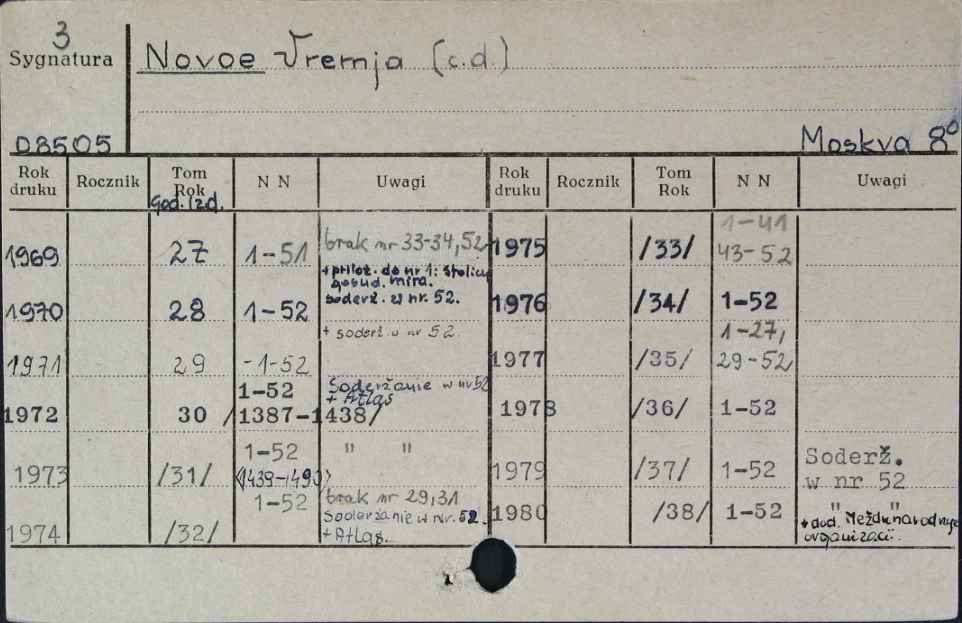 3
Sygnatura
Novoe Vremja (c.d.)
D8505
Moskva 8°
Rok druku Rocznik Tom Rok N N Uwagi Rok druku Rocznik Tom Rok N N Uwagi
God. izd.
1969 27 1-51 brak nr 33-34, 52
+ prilož. do nr 1: Stolicy
gosud. mira.
1970 28 1-52 soderž. w nr. 52.
1971 29 -1-52 + soderž. w nr 52.
1972 30 1-52 /1387-1438/ Soderžanie w nr 52
+ Atlas
1973 /31/ 1-52 (1439-1490) " "
1974 /32/ 1-52 brak nr 29,31
Soderžanie w nr. 52.
+ Atlas.
1975 /33/ 1-41
43-52
1976 /34/ 1-52
1977 /35/ 1-27,
29-52
1978 /36/ 1-52
1979 /37/ 1-52 Soderž.
w nr 52
1980 /38/ 1-52 " "
+ dod. Meždunarodnye
organizacii.